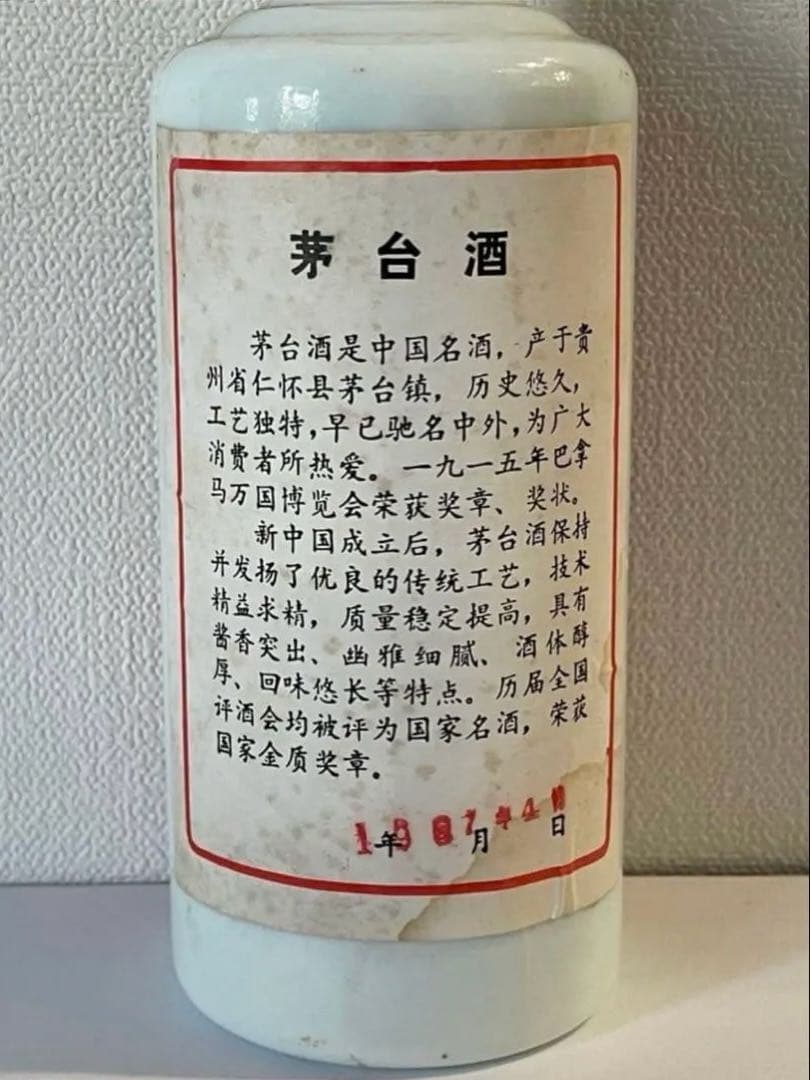 茅台酒
茅台酒是中国名酒，产于贵
州省仁怀县茅台镇，历史悠久，
工艺独特，早已驰名中外，为广大
消费者所热爱。一九一五年巴拿
马万国博览会荣获奖章、奖状。
新中国成立后，茅台酒保持
并发扬了优良的传统工艺，技术
精益求精，质量稳定提高，具有
酱香突出、幽雅细腻、酒体醇
厚、回味悠长等特点。历届全国
评酒会均被评为国家名酒，荣获
国家金质奖章。
1987年4月
年 月 日